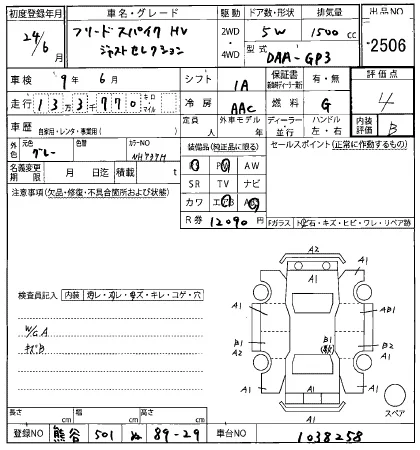 初度登録年月 車名・グレード 駆動 ドア数・形状 排気量 出品NO
24/6 フリードスパイク HV 2WD 5W 1500 cc 2506
月 ジャストセレクション 4WD 型式 DAA-GP3
車検 9年 6月 シフト IA 保証書 有・無 評価点
走行 13万3千770 キロ マイル 冷房 AAC 燃料 G 4
車歴 自家用・レンタ・事業用( ) 定員 人 外車モデル 年 ディーラー 並行 ハンドル 左・右 内装評価 B
元色 グレー 色替 カラーNO NH737M 装備品(純正品に限る) セールスポイント(正常に動作するもの)
名義変更期限 月 日迄 積載 t PS PW AW
注意事項(欠品・修復・不具合箇所および状態) SR TV ナビ
カワ エアB ABS
R券 12090 円 Fガラス トビ石・キズ・ヒビ・ワレ・リペア跡
A2
A1 A1 A1
検査員記入 内装
A1 AB1
W/G A B1 B1 B2
キズB A2
A1 A1 A1
A1
スペア
長さ cm 幅 cm 高さ cm
登録NO 熊谷 501 ぬ 89-29 車台NO 1038258